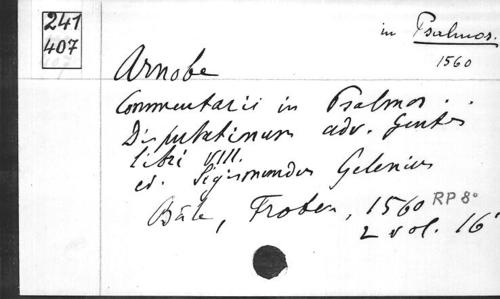 241
407
in Psalmos.
1560
Arnobe
Commentarii in Psalmos . .
Disputationum adv. Gentes
libri VIII.
ed. Sigismundus Gelenius
Bâle, Froben, 1560 RP 8°
2 vol. 16°